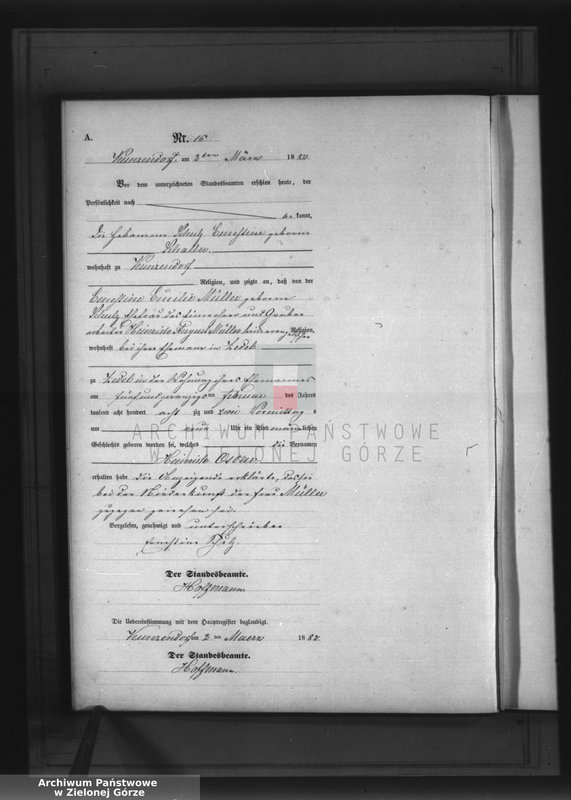 A.
Nr. 15
Kunzendorf, am 2 ten März 1882.
Vor dem unterzeichneten Standesbeamten erschien heute, der
Persönlichkeit nach
kannt,
die Hebamme Schulz Ernestine geborne
Schaller
wohnhaft zu Kunzendorf
Religion, und zeigte an, daß von der
Ernestine Emilie Müller geborene
Schulz Ehefrau des Einwohner und Gruben
arbeiter Heinrich August Müller Religion,
wohnhaft bei ihrem Ehemann in Zedel
zu Zedel in der Wohnung ihres Ehemannes
am fünfundzwanzigs ten Februar des Jahres
tausend acht hundert acht zig und zwei Vormittag s
um neun Uhr ein Kind männlichen
Geschlechts geboren worden sei, welches die Vornamen
Heinrich Oscar
erhalten habe die Anzeigende erklärte, dass sie
bei der Niederkunft der Frau Müller
zugegen gewesen sei.
Vorgelesen, genehmigt und unterschrieben
Ernestine Schulz
Der Standesbeamte.
Hoffmann
Die Uebereinstimmung mit dem Hauptregister beglaubigt.
Kunzendorf am 2 ten Maerz 1882.
Der Standesbeamte.
Hoffmann
ARCHIWUM PAŃSTWOWE
W ZIELONEJ GÓRZE
Archiwum Państwowe
w Zielonej Górze